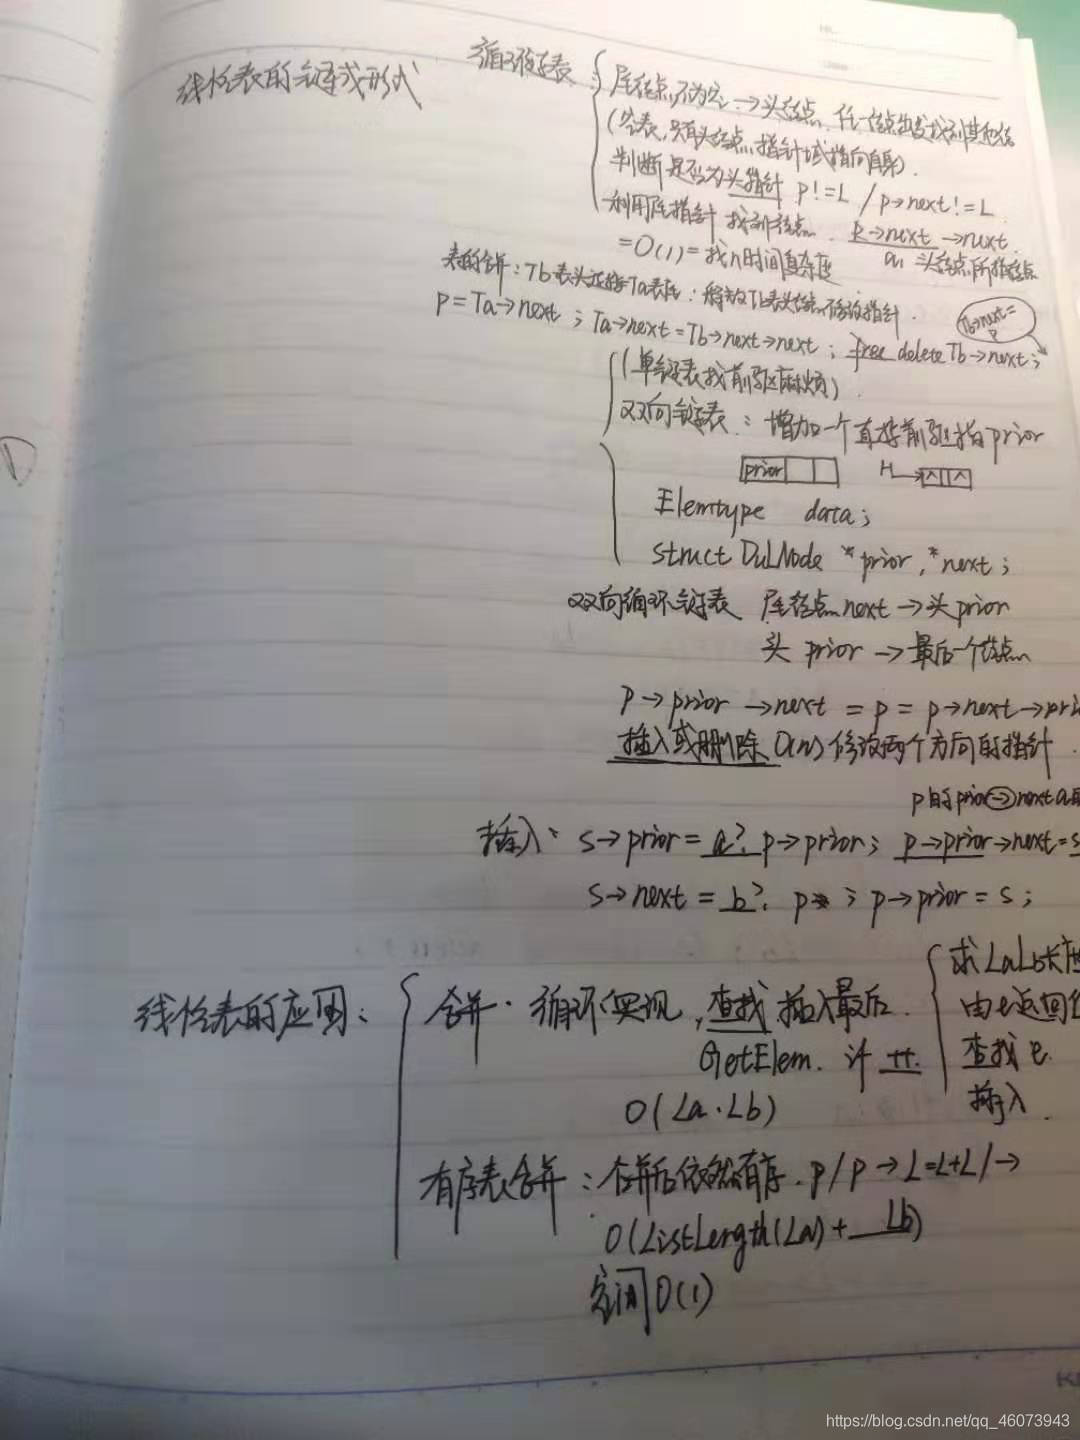 线性表的链式形式
循环链表
尾结点不为空→头结点 任一结点出发找到其他结
(空表,只有头结点,指针域指向自身).
判断是否为头指针 p!=L / p→next!=L
利用尾指针 找到结点. R→next→next.
=O(1)=找n时间复杂度 a1 头结点所指结点
表的合并:Tb表头连接Ta表尾:释放Tb表头结点,修改指针.
p=Ta→next ; Ta→next=Tb→next→next ; free delete Tb→next;
Tb→next=P
(单链表找前驱麻烦)
双向链表:增加一个直接前驱指prior
prior H→ ^ ^
Elemtype data;
struct DuLNode *prior,*next;
双向循环链表 尾结点next→头prior
头 prior→最后一个结点
P→prior→next=p=p→next→pri
插入或删除 O(n)修改两个方向的指针.
p的prior→next
插入: s→prior=a? p→prior; p→prior→next=s
s→next=b? p ; p→prior=s;
线性表的应用:
合并·循环实现,查找,插入最后.
GetElem. 计 ++.
O(La·Lb)
求LaLb长度
由e返回
查找e.
插入.
有序表合并:合并后依然有序.p/p→L=L+L/→
O(ListLength(La)+ Lb)
空间O(1)
https://blog.csdn.net/qq_46073943